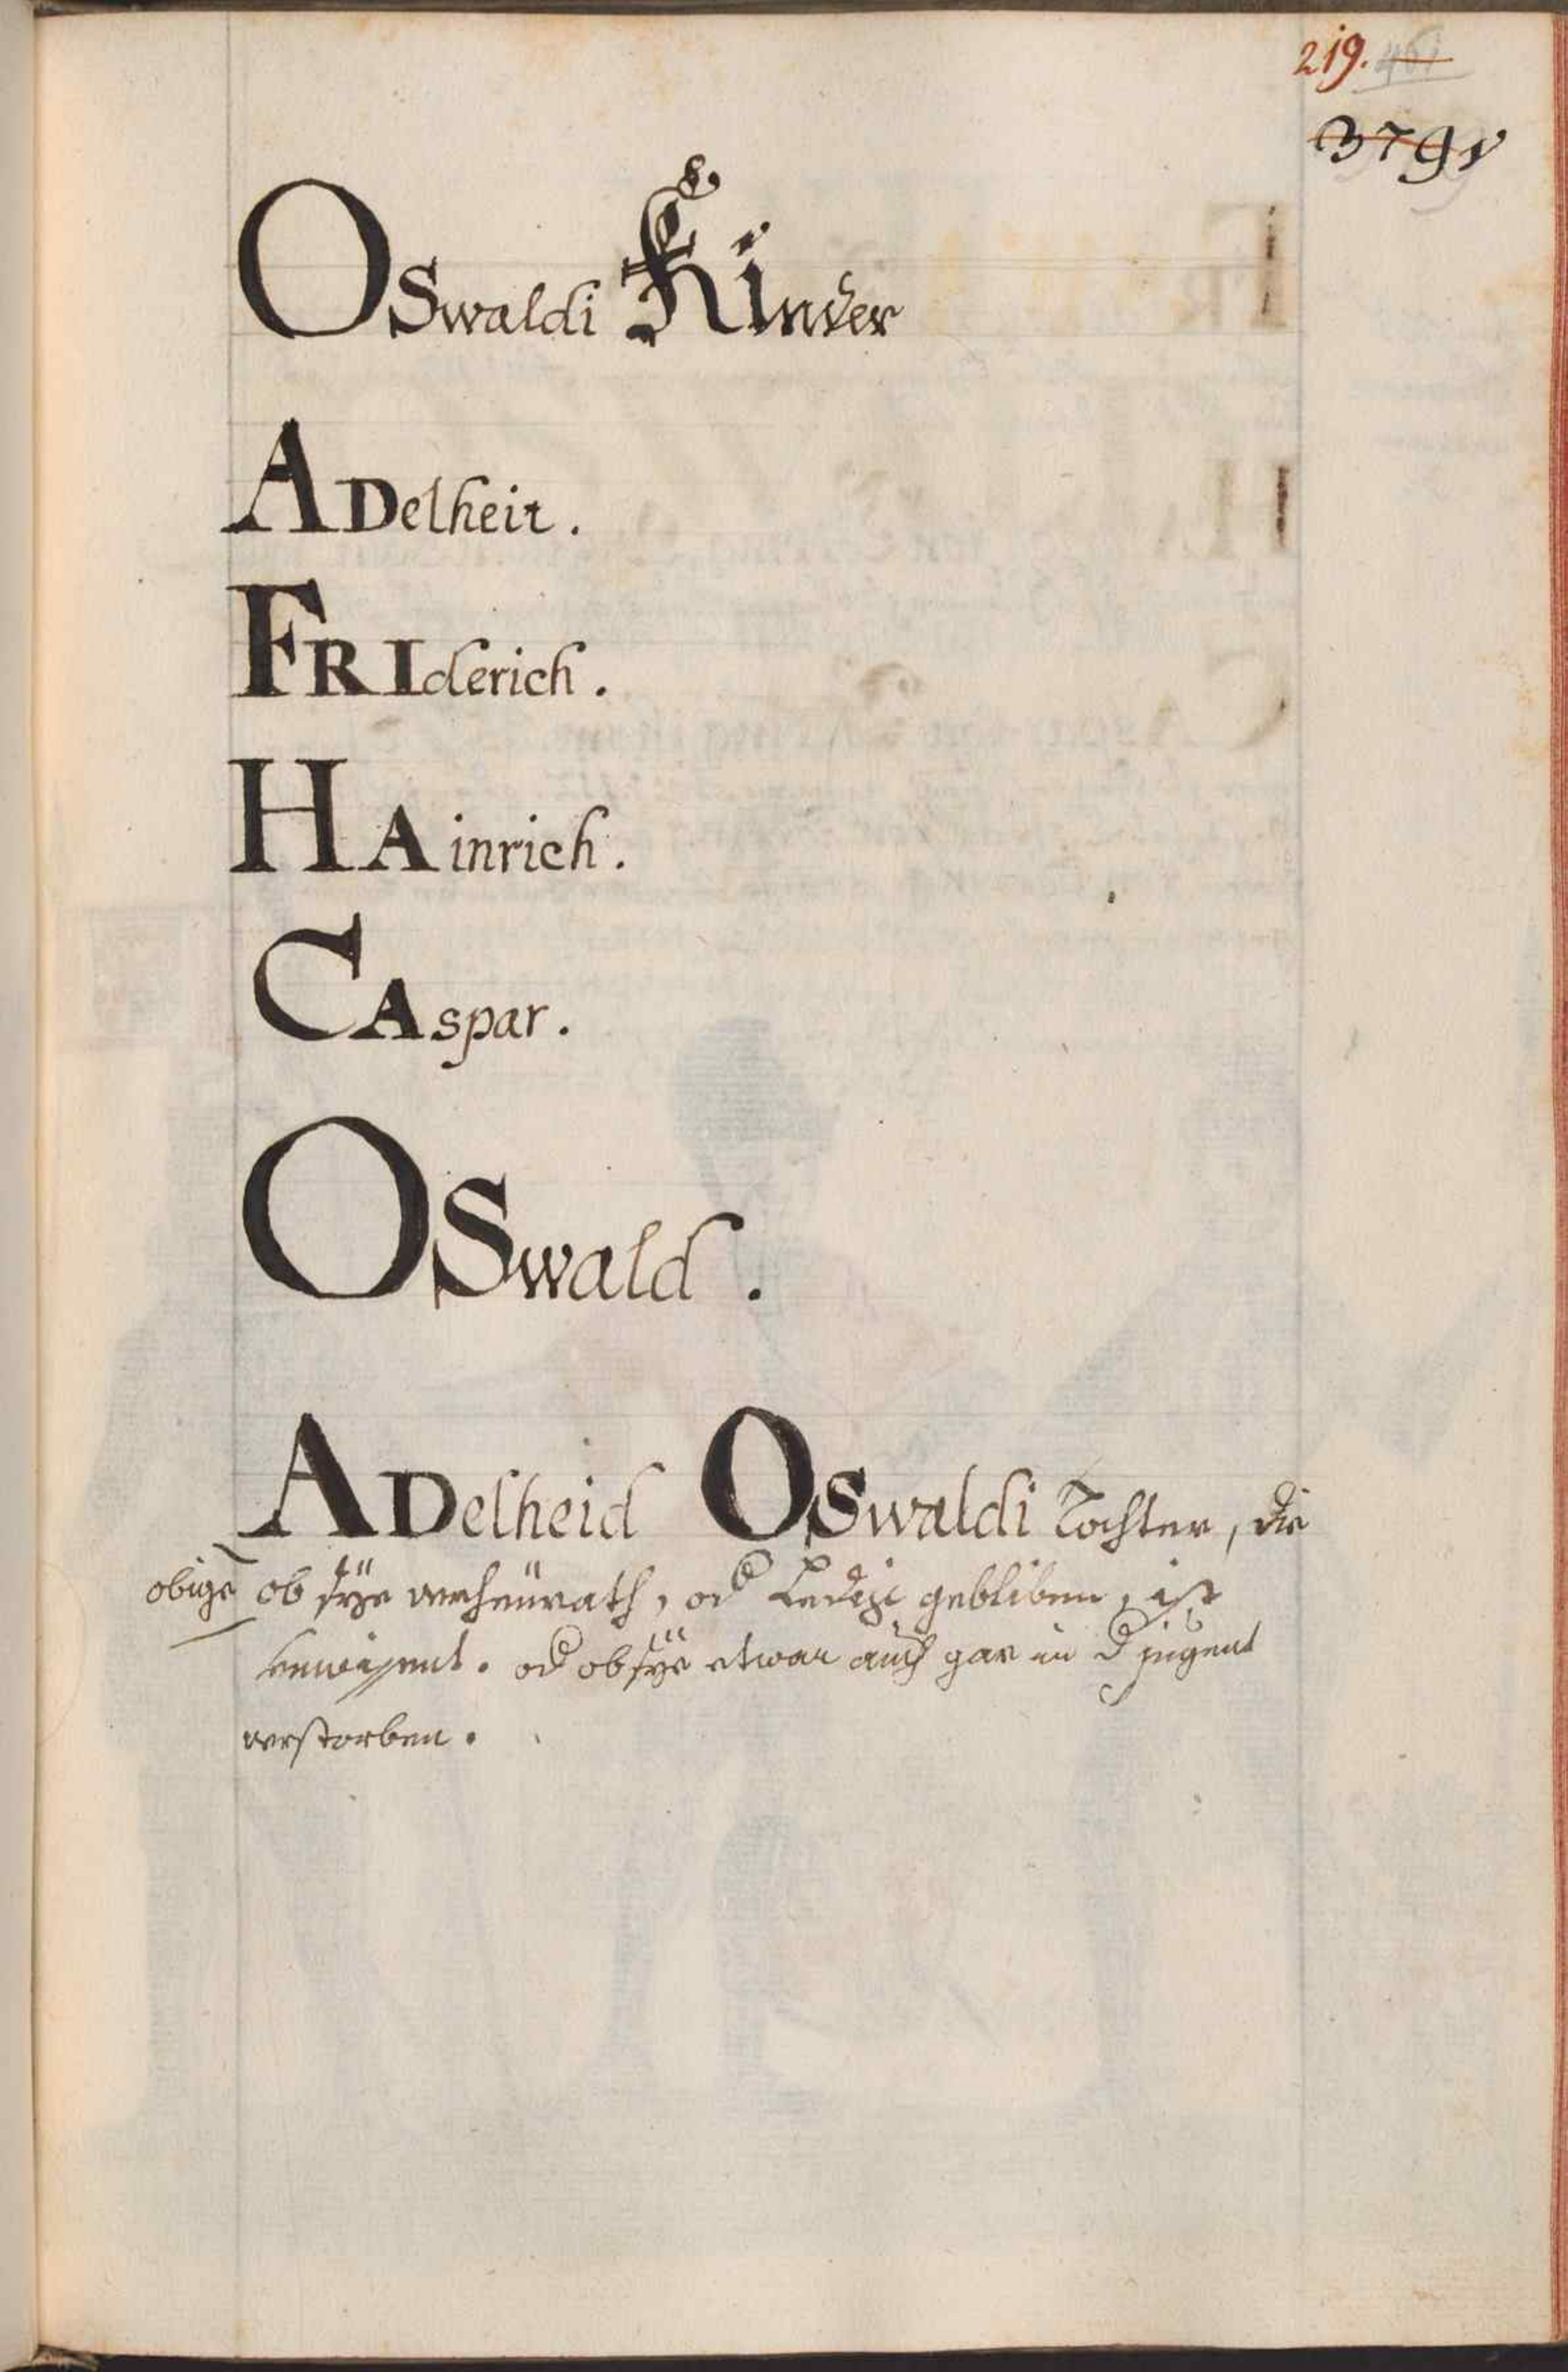 219. 461
379
OSwaldi Kinder
ADelheit.
FRIderich.
HAinrich.
CAspar.
OSwald.
ADelheid OSwaldi Tochter, die
obige ob sÿe verheürath, od Ledig gebliben, ist
unwissent. od ob sÿe etwan auch gar in d jugent
verstorben.